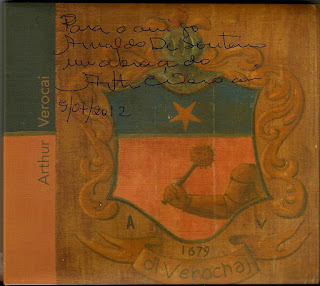 Para o amigo
Arnaldo DeSouteiro
um abraço do
Arthur Verocai
5/07/2012
Arthur Verocai
A V
1679
di Verochai